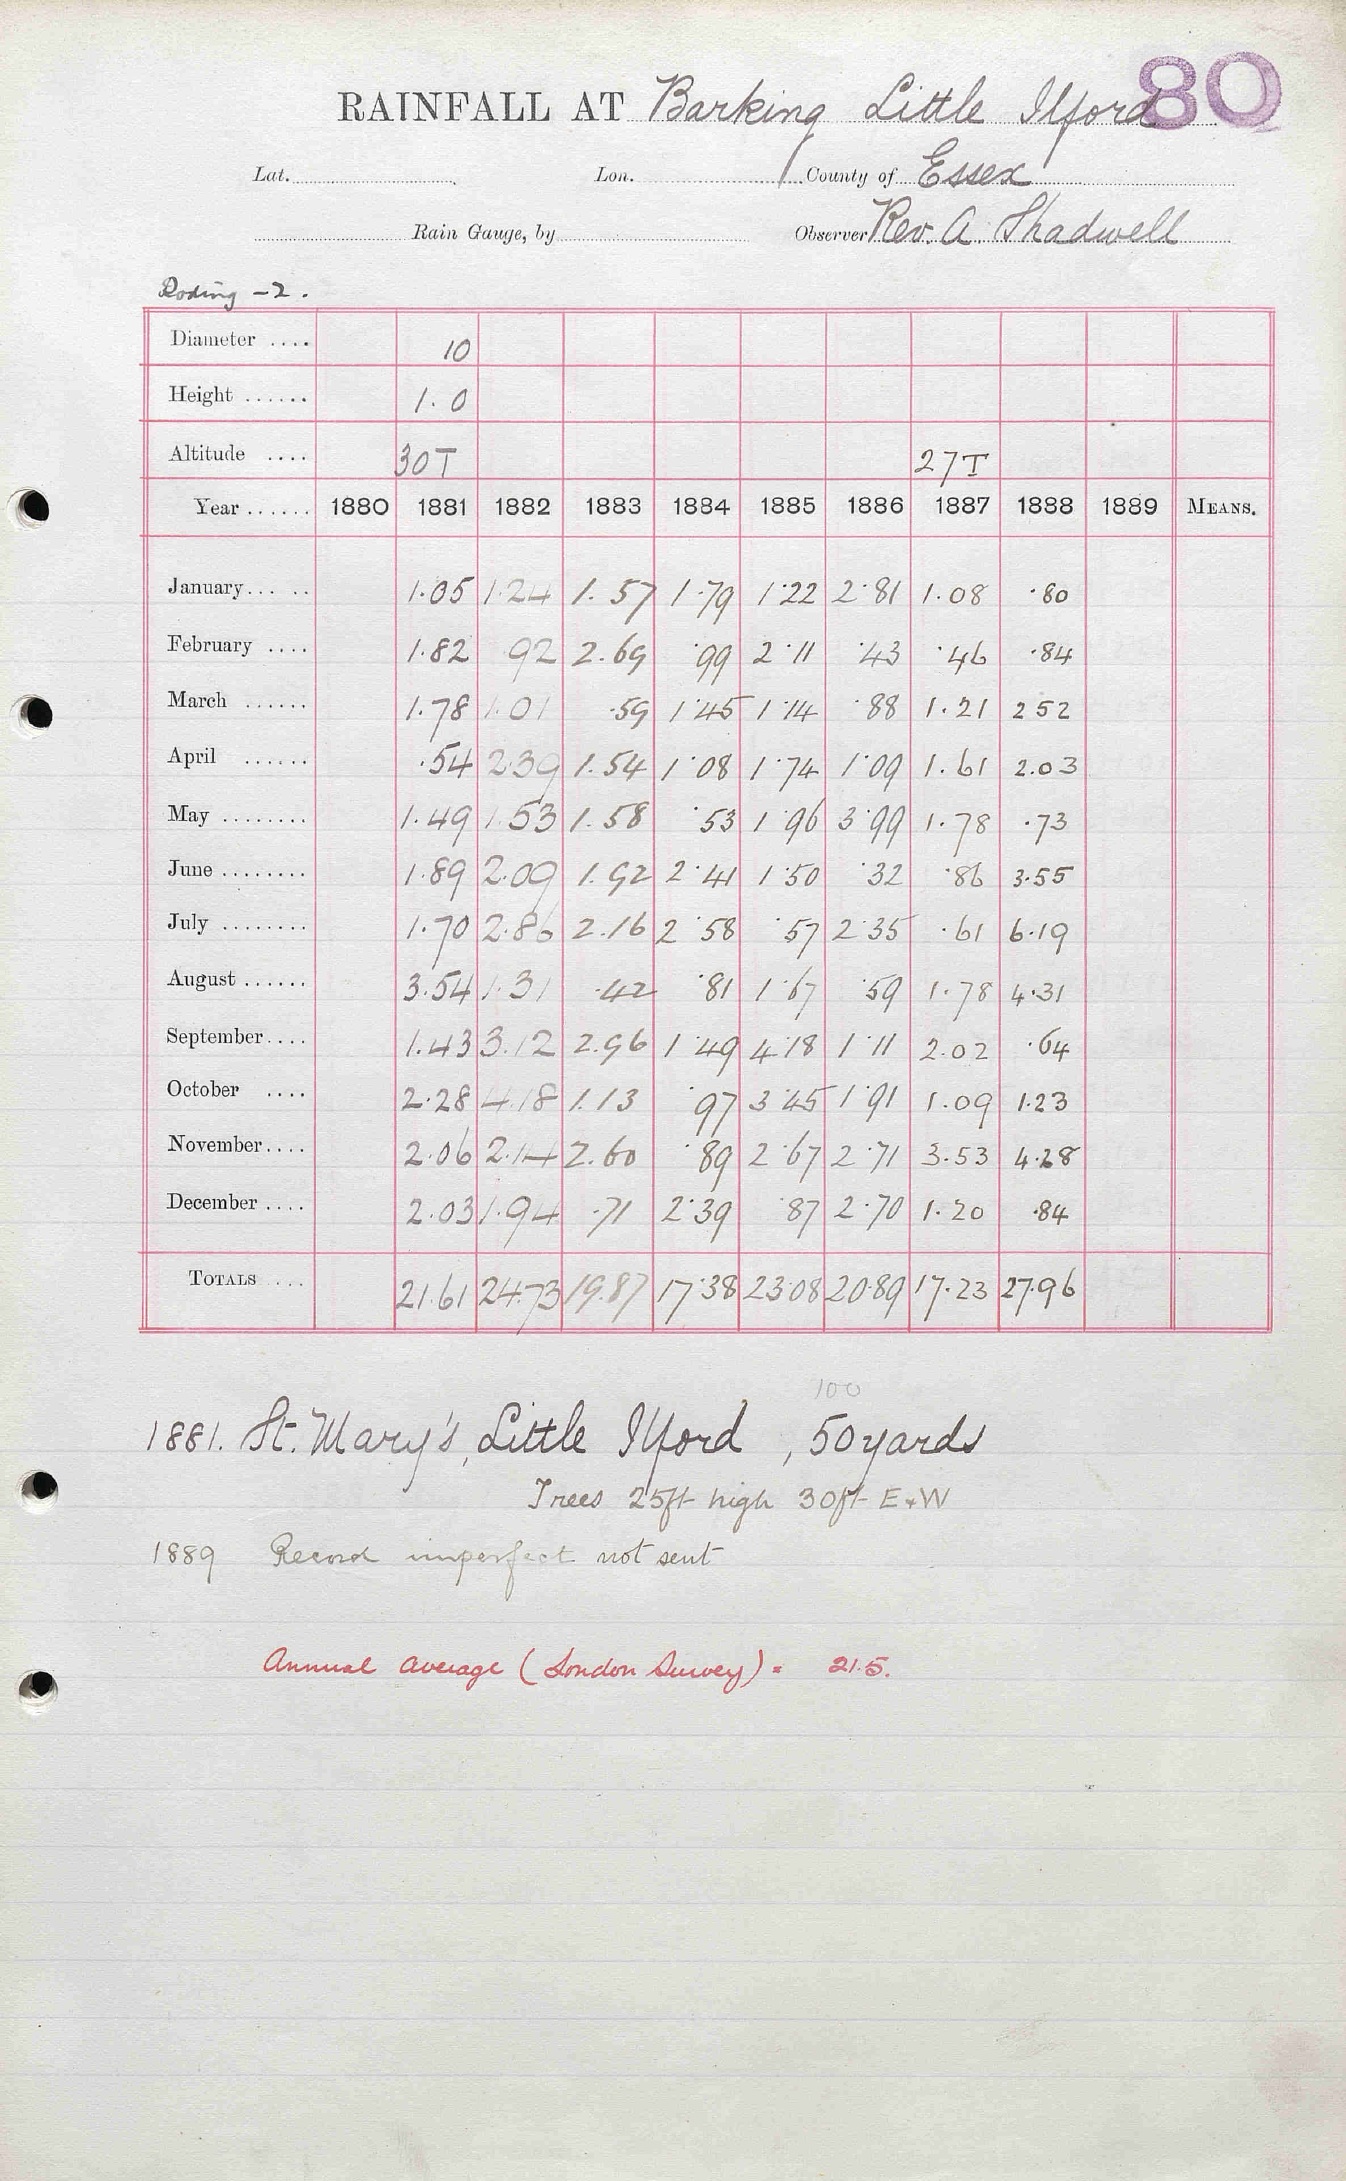 80
RAINFALL AT Barking Little Ilford
Lat. Lon. County of Essex
Rain Gauge, by Observer Rev. A. Shadwell
Roding -2.
Diameter .... 10
Height ...... 1.0
Altitude .... 30T 27T
Year ...... 1880 1881 1882 1883 1884 1885 1886 1887 1888 1889 MEANS.
January... .. 1.05 1.24 1.57 1.79 1.22 2.81 1.08 .80
February .... 1.82 .92 2.69 .99 2.11 .43 .46 .84
March ...... 1.78 1.01 .59 1.45 1.14 .88 1.21 2 52
April ...... .54 2.39 1.54 1.08 1.74 1.09 1.61 2.03
May ........ 1.49 1.53 1.58 .53 1.96 3.99 1.78 .73
June ........ 1.89 2.09 1.92 2.41 1.50 .32 .86 3.55
July ........ 1.70 2.86 2.16 2.58 .57 2.35 .61 6.19
August ...... 3.54 1.31 .42 .81 1.67 .59 1.78 4.31
September.... 1.43 3.12 2.96 1.49 4.18 1.11 2.02 .64
October .... 2.28 4.18 1.13 .97 3.45 1.91 1.09 1.23
November.... 2.06 2.14 2.60 .89 2.67 2.71 3.53 4.28
December .... 2.03 1.94 .71 2.39 .87 2.70 1.20 .84
TOTALS ... 21.61 24.73 19.87 17.38 23.08 20.89 17.23 27.96
100
1881. St. Mary's, Little Ilford , 50 yards
Trees 25ft high 30ft E+W
1889 Record imperfect not sent
Annual average (London Survey) = 21.5.